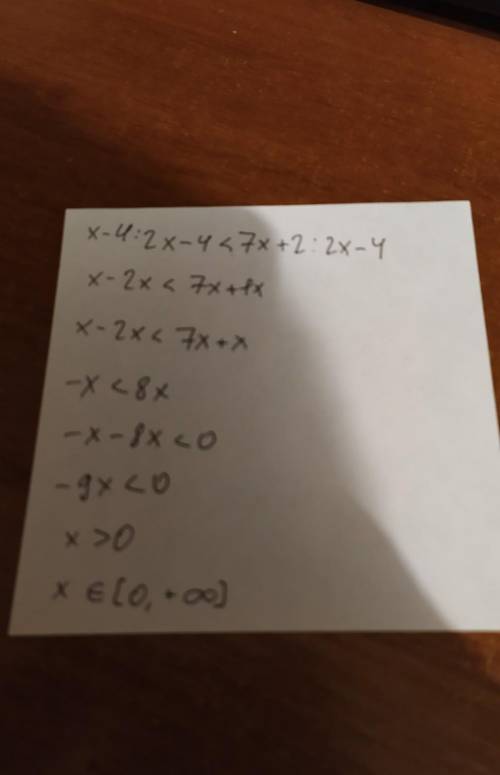 x-4:2x-4<7x+2:2x-4
x-2x< 7x+1x
x-2x< 7x+x
-x<8x
-x-8x<0
-9x<0
x>0
x ∈[0,+∞]